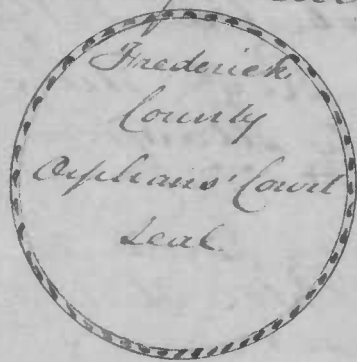 Frederick
County
Orphans' Court
Seal.